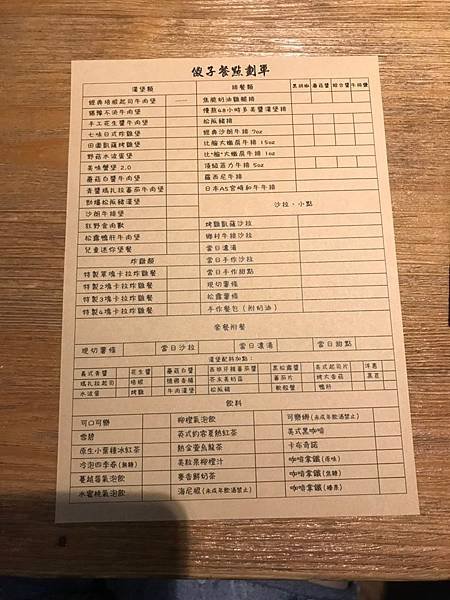 傻子餐點劃單
漢堡類 排餐類 黑胡椒 蘑菇醬 綜合醬 牛排堡
經典培根起司牛肉堡 焦脆奶油雞腿排
獵糧不流牛肉堡 慢熬48小時多蜜醬漢堡排
手工花生醬牛肉堡 松阪豬排
七味日式炸雞堡 經典沙朗牛排 7oz
田園凱薩烤雞堡 比臉大嫩肩牛排 15oz
野菇水波蛋堡 比"臉"大嫩肩牛排 15oz
美味蟹堡 2.0 頂級菲力牛排 5oz
蘑菇白醬牛肉堡 羅西尼牛排
青醬瑪扎拉蕃茄牛肉堡 日本A5宮崎和牛牛排
對爆松阪豬漢堡 沙拉、小點
沙朗牛排堡
狂野食肉獸 烤雞凱薩沙拉
松露鴨肝牛肉堡 鄉村牛排沙拉
兒童迷你堡餐 當日濃湯
炸雞類 當日手作沙拉
特製單塊卡拉炸雞餐 當日手作甜點
特製2塊卡拉炸雞餐 現切薯條
特製3塊卡拉炸雞餐 松露薯條
特製4塊卡拉炸雞餐 手作餐包(附奶油)
套餐附餐
現切薯條 當日沙拉 當日濃湯 當日甜點
漢堡配料加點：
義式青醬 花生醬 蘑菇白醬 西班牙辣蕃茄醬 黑松露醬 美式起司片 洋蔥
瑪扎拉起司 培根 德國香腸 芥末美奶菇 蕃茄片 烤大香菇 黑豆
水波蛋 烤雞 牛肉漢堡 松阪豬 軟殼蟹 鴨肝
飲料
可口可樂 柳橙氣泡飲 可樂娜(未成年飲酒禁止)
雪碧 英式約客夏熱紅茶 美式黑咖啡
原生小葉種冰紅茶 熱金萱烏龍茶 卡布奇諾
冷泡四季春(無糖) 美粒果柳橙汁 咖啡拿鐵(原味)
蔓越莓氣泡飲 麥香鮮奶茶 咖啡拿鐵(焦糖)
水蜜桃氣泡飲 海尼根(未成年飲酒禁止) 咖啡拿鐵(榛果)